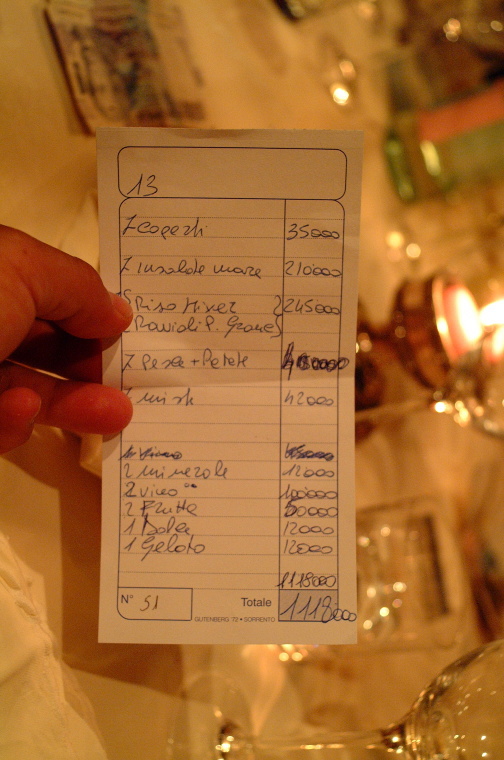 13
7 Coperti 35000
7 Insalate mare 210000
Riso Mixer 245000
Ravioli P. Grane
7 Pesce + Patate
7 misti 42000
2 minerale 12000
2 vino 100000
2 Frutta 50000
1 Dolce 12000
1 Gelato 12000
1118000
N° 51 Totale 1118000
GUTENBERG '72 • SORRENTO